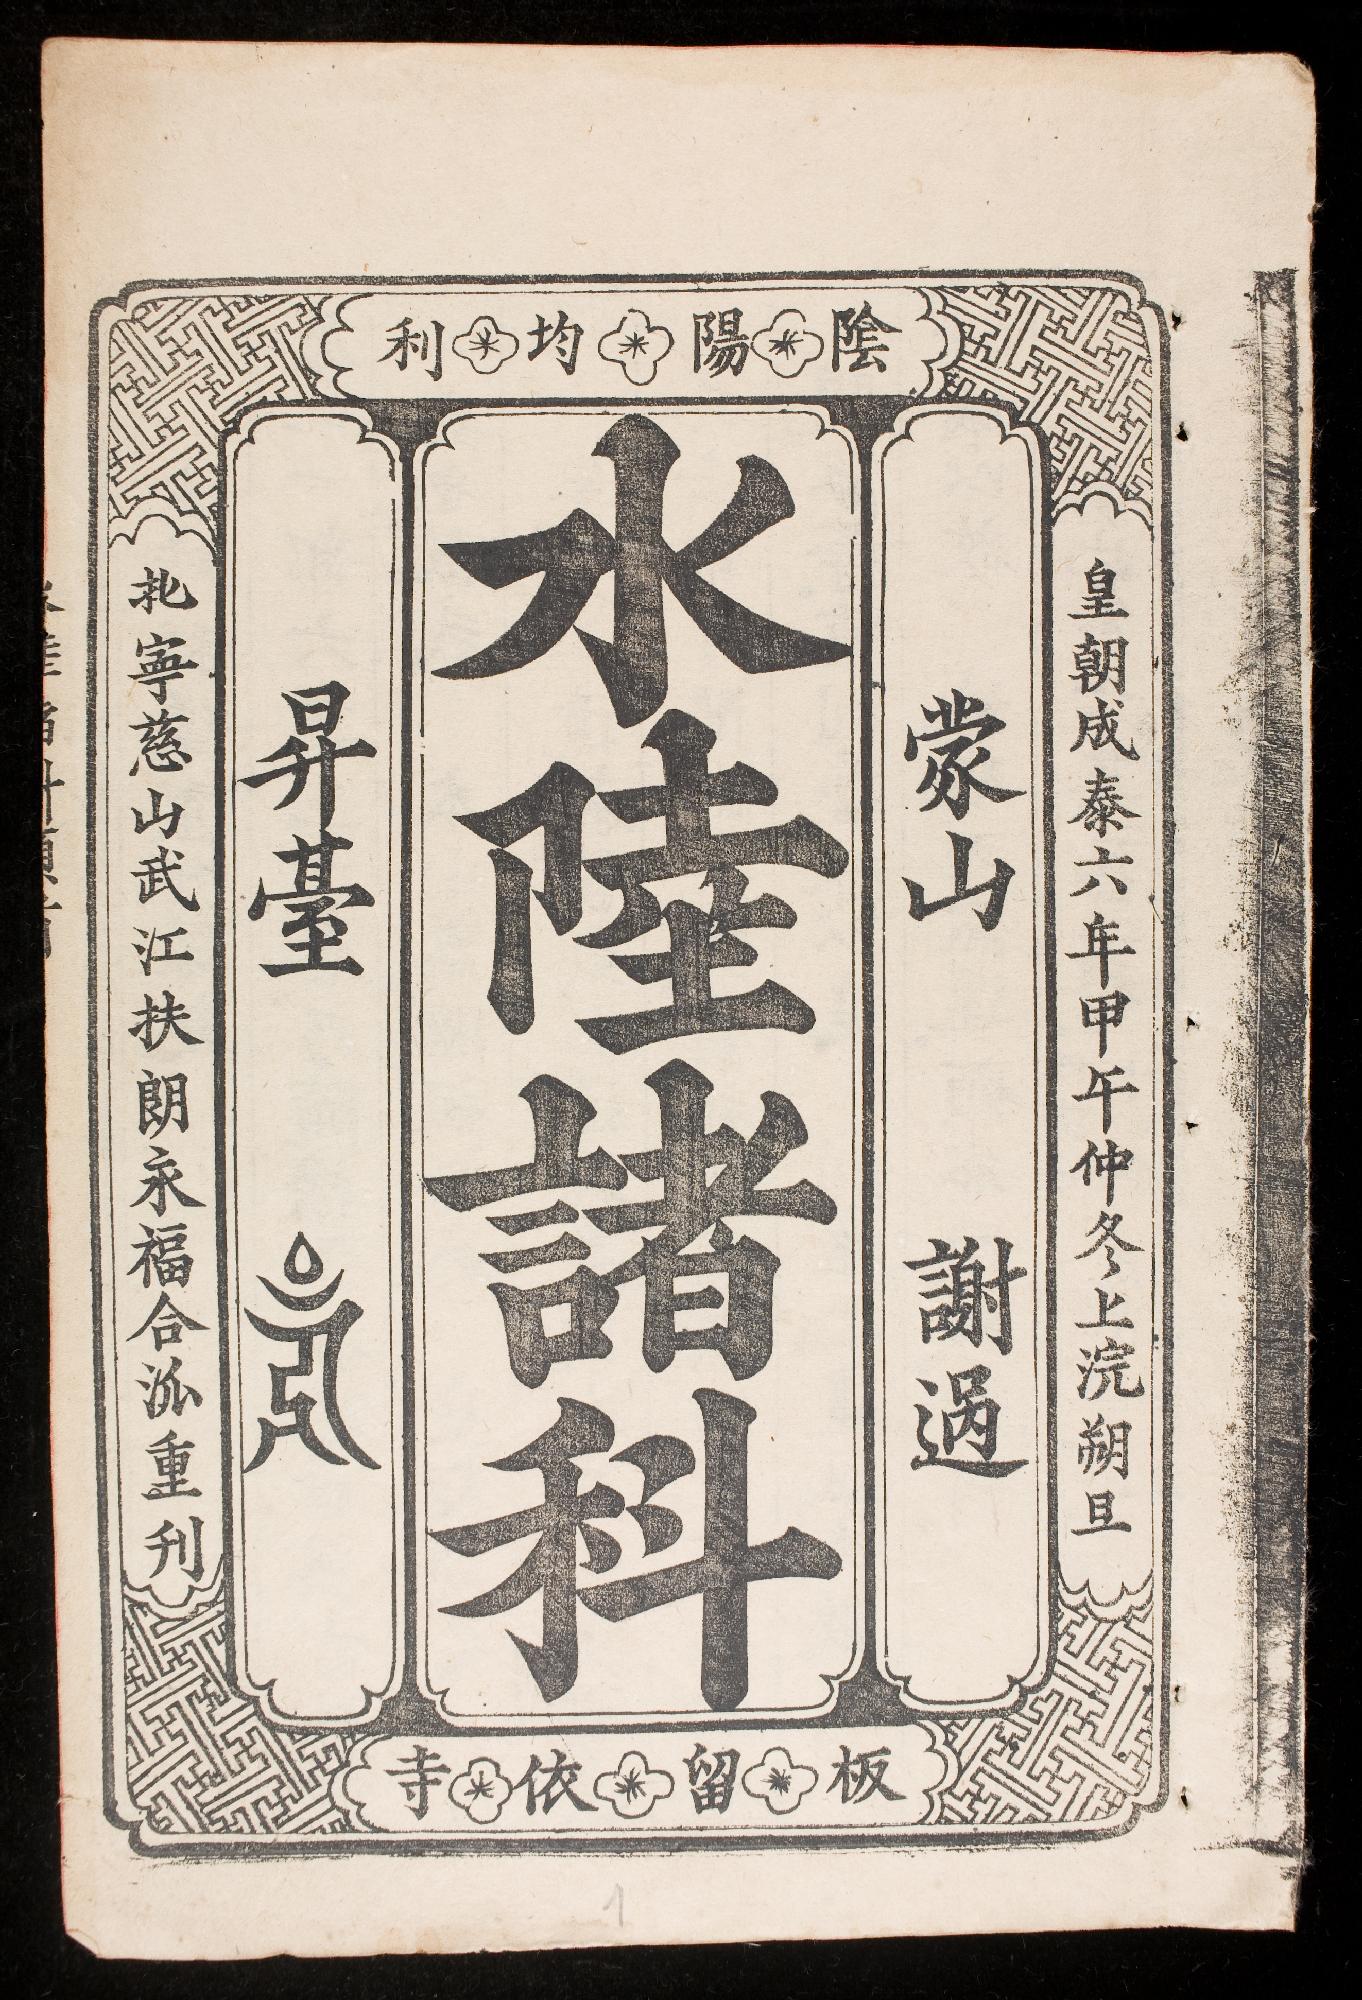 陰陽均利
皇朝成泰六年甲午仲冬上浣朔旦
蒙山 謝過
水陸諸科
昇臺
北寧慈山武江扶朗永福合派重刊
板留依寺
1